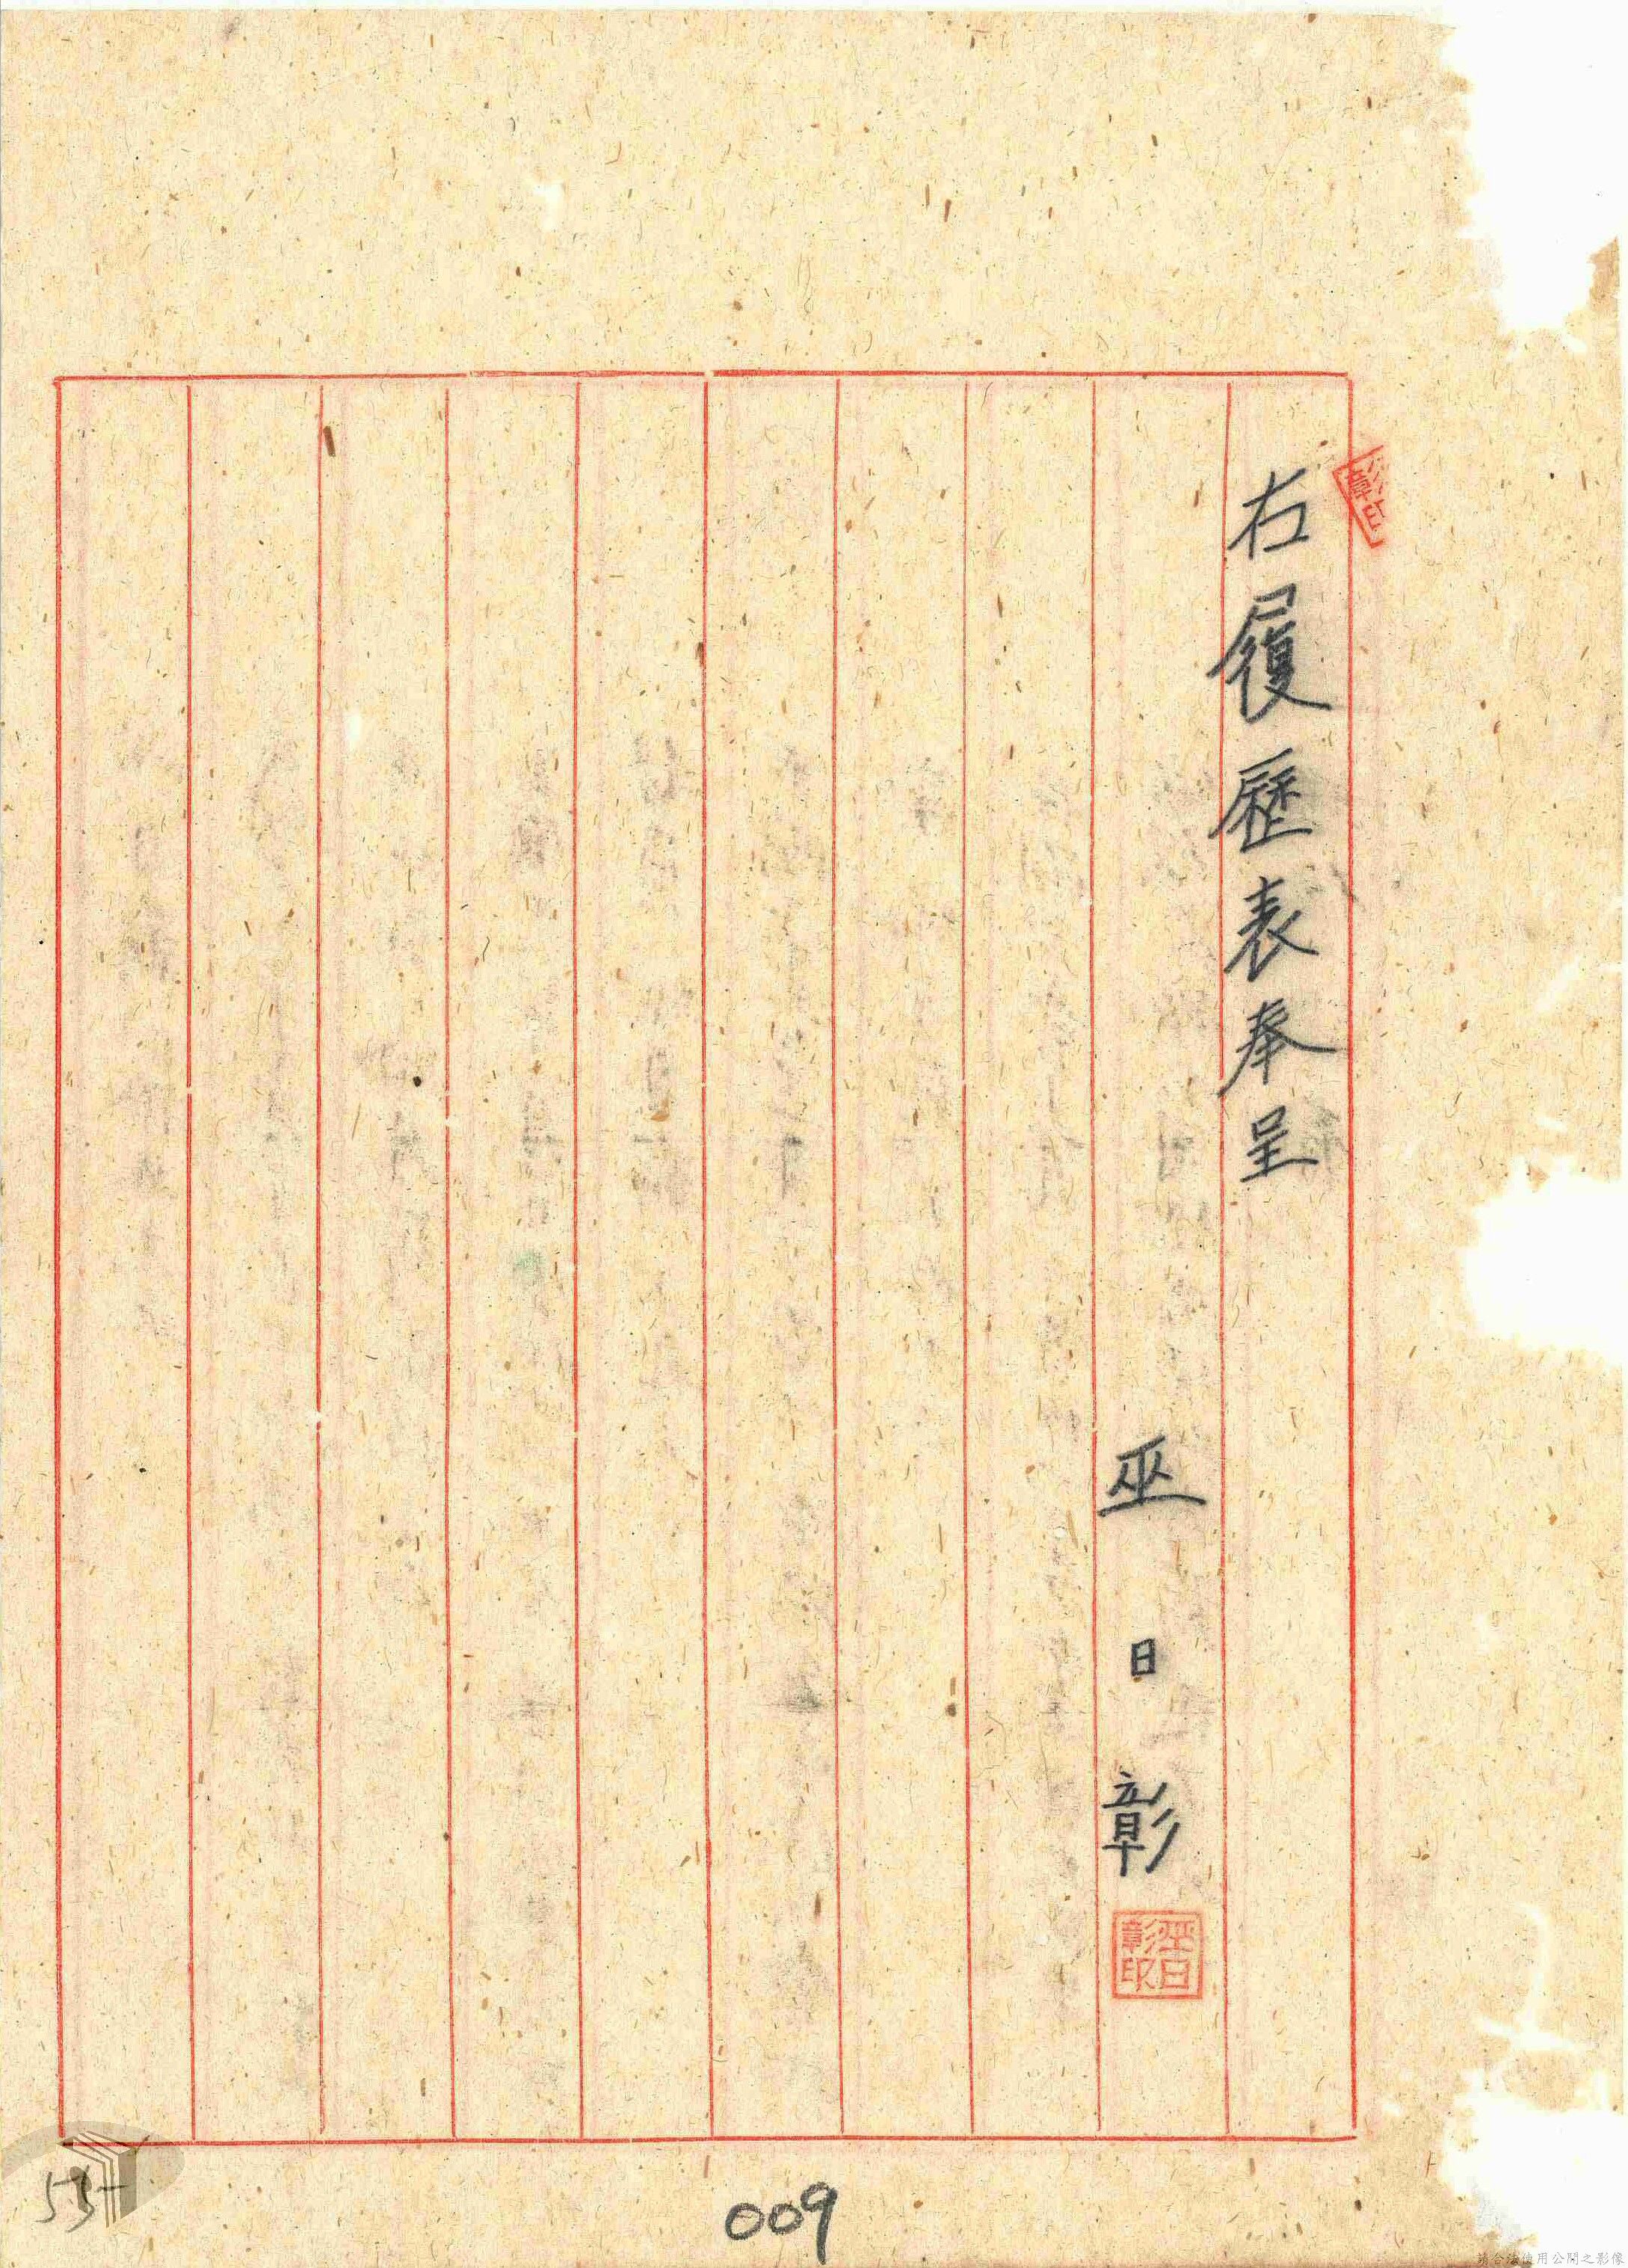 右履歷表奉呈
巫日彰
巫日彰印
009
請合法使用公開之影像